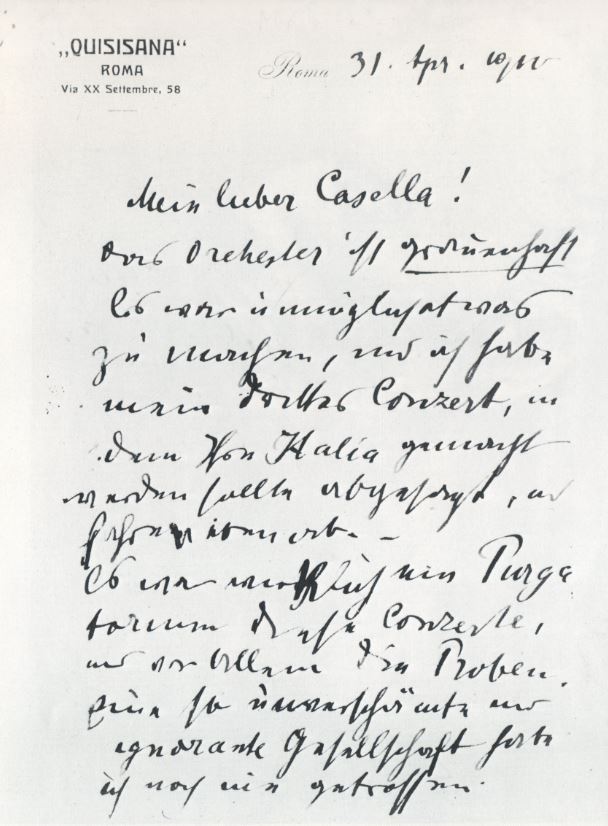 „QUISISANA“
ROMA
Via XX Settembre, 58
Roma 31. Apr. 1910
Mein lieber Casella!
Das Orchester ist grauenhaft
Es war unmöglich etwas
zu machen, und ich habe
mein drittes Conzert, in
dem Ihre Italia gemacht
werden sollte abgesagt, und
fahre eben ab. –
Es war wirklich ein Purga
torium diese Conzerte,
und vor Allem die Proben.
Eine so unverschämte und
ignorante Gesellschaft habe
ich noch nie getroffen.